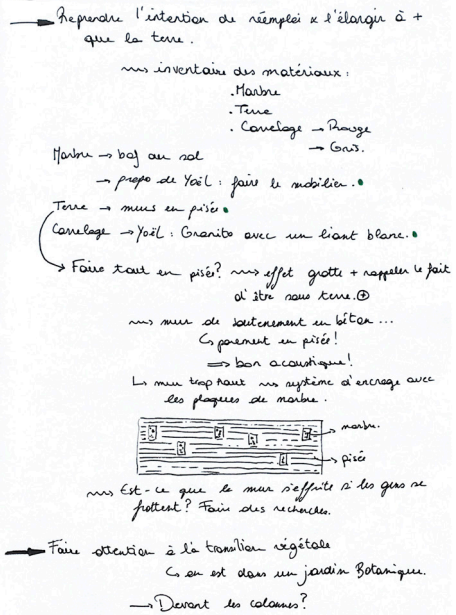 → Reprendre l'intention de réemploi & l'élargir à +
que la terre.
⟿ inventaire des matériaux :
. Marbre
. Terre
. Carrelage → Rouge
→ Gris.
Marbre → baf au sol
→ propo de Yaël : faire le mobilier.
Terre → murs en pisée
Carrelage → Yaël : Granito avec un liant blanc.
→ Faire tout en pisée? ⟿ effet grotte + rappeler le fait
d'être sous terre. ⊕
⟿ mur de soutenement en béton ...
↳ parement en pisée!
⇒ bon acoustique!
↳ mur trop haut ⟿ système d'encrage avec
les plaques de marbre.
→ marbre.
→ pisée
⟿ Est-ce que le mur s'effrite si les gens se
frottent? Faire des recherches.
→ Faire attention à la transition végétale
↳ on est dans un jardin Botanique.
→ Devant les colonnes?